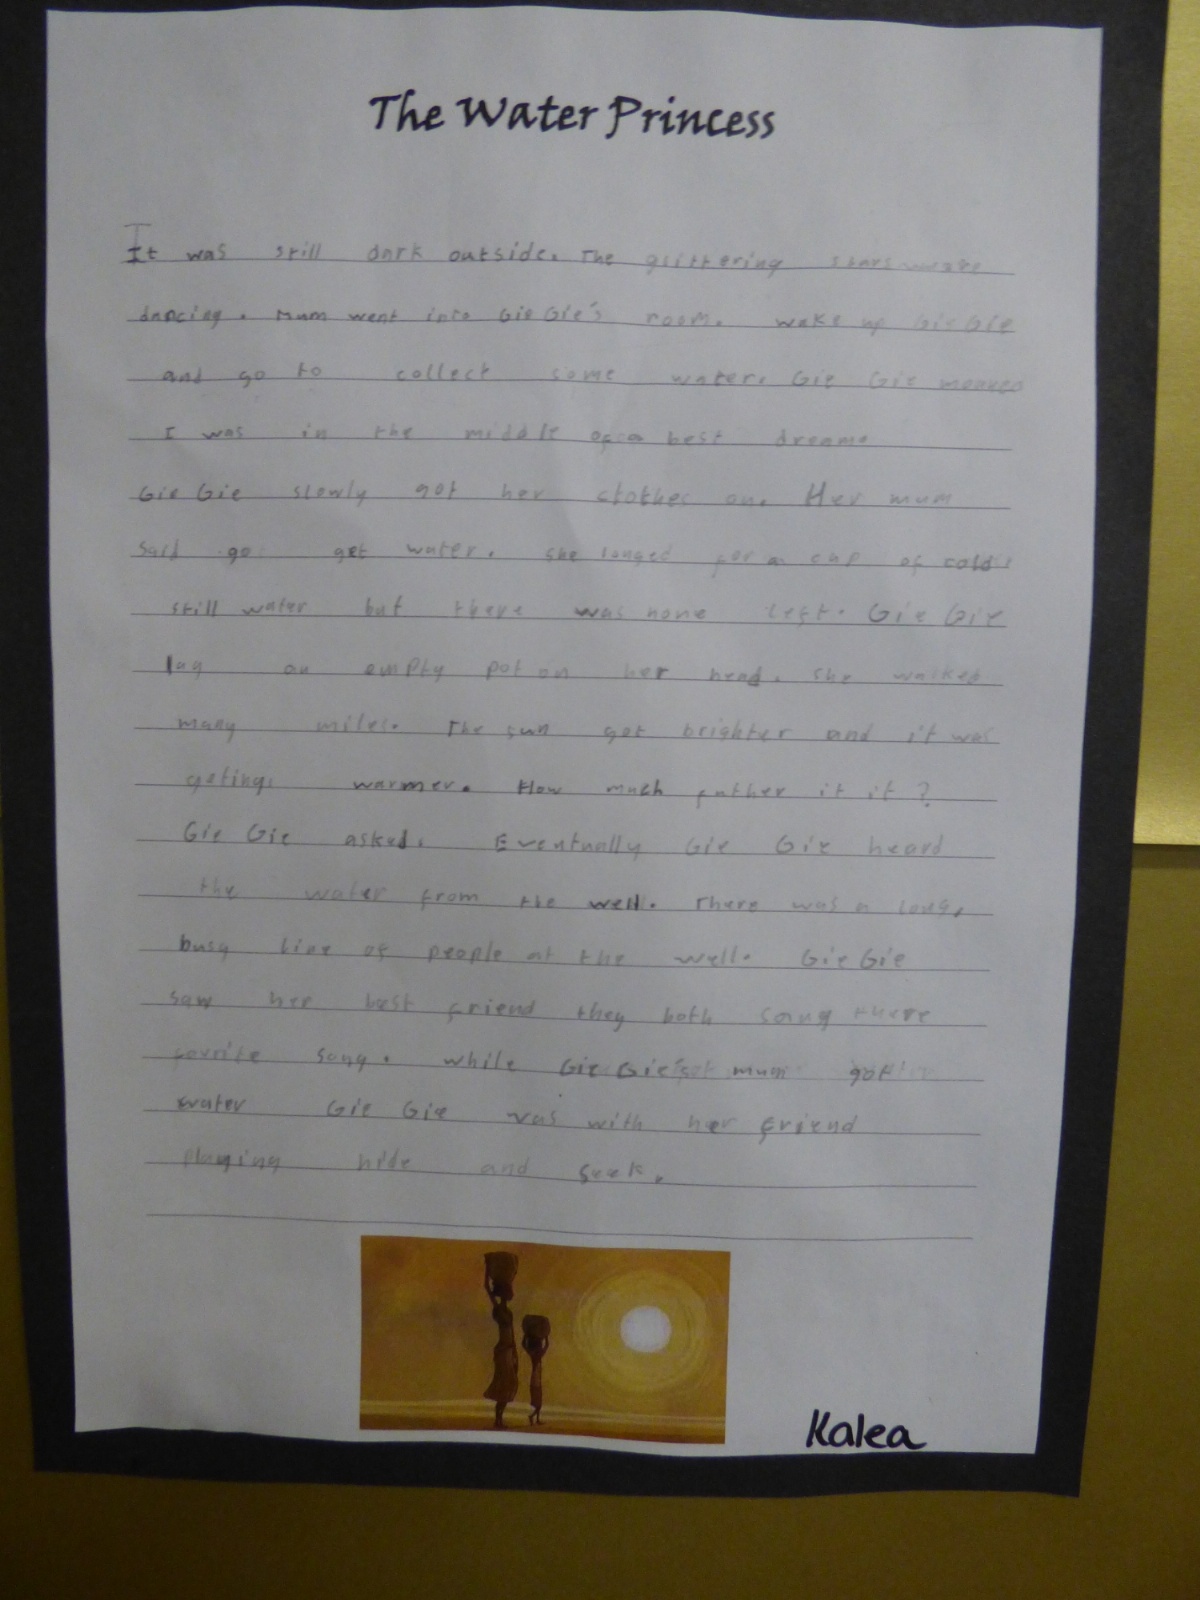 The Water Princess
It was still dark outside. The glittering stars were
dancing. Mum went into Gie Gie's room. wake up Gie Gie
and go to collect some water. Gie Gie moaned
I was in the middle of a best dream.
Gie Gie slowly got her clothes on. Her mum
said go get water. she longed for a cup of cold
still water but there was none left. Gie Gie
lay an empty pot on her head. she walked
many miles. The sun got brighter and it was
geting warmer. How much futher it it ?
Gie Gie asked. Eventually Gie Gie heard
the water from the well. There was a long,
busy line of people at the well. Gie Gie
saw her best friend they both sang there
favrite song. while Gie Gie's mum got
water Gie Gie was with her friend
playing hide and seek.
Kalea